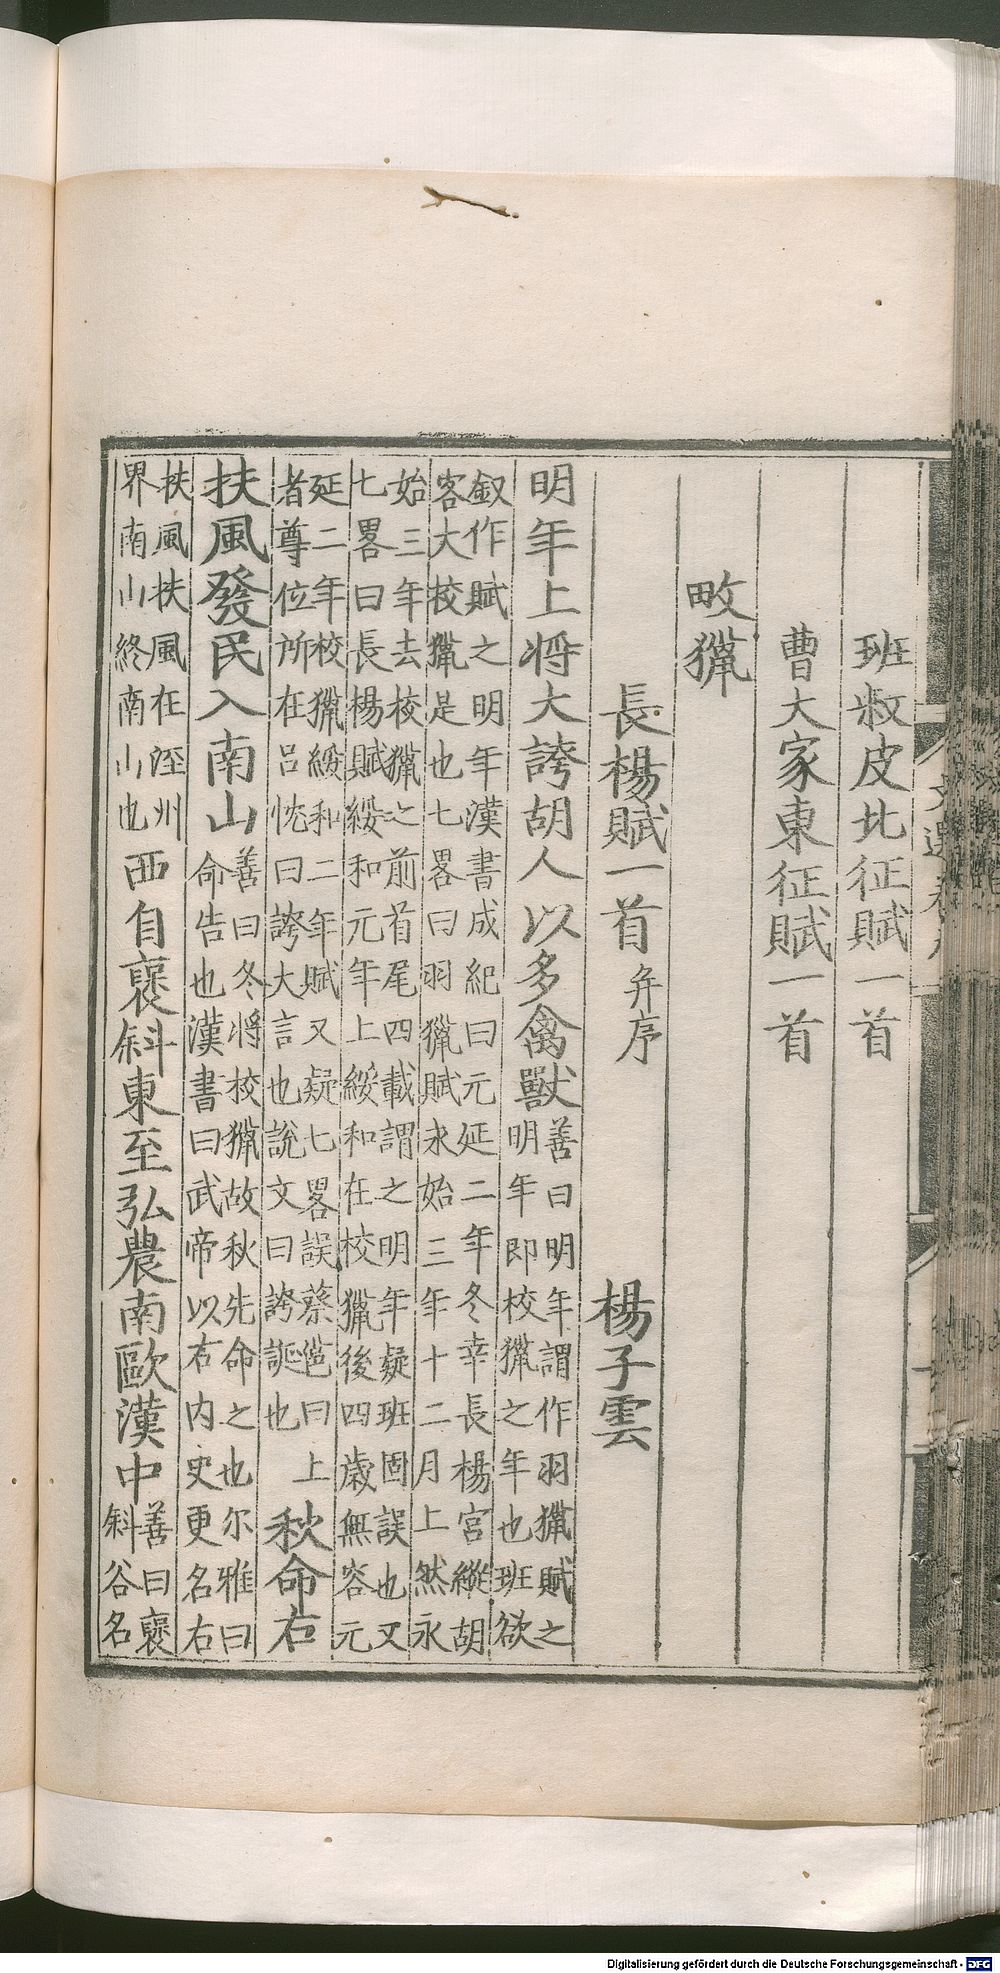 班叔皮北征賦一首
曹大家東征賦一首
畋獵
長楊賦一首 并序 楊子雲
明年上將大誇胡人以多禽獸 善曰明年謂作羽獵賦之
明年即校獵之年也班欲
叙作賦之明年漢書成紀曰元延二年冬幸長楊宮縱胡
客大校獵是也七畧曰羽獵賦永始三年十二月上然永
始三年去校獵之前首尾四載謂之明年疑班固誤也又
七畧曰長楊賦綏和元年上綏和在校獵後四歲無容元
延二年校獵綏和二年賦又疑七畧誤蔡邕曰上
者尊位所在呂忱曰誇大言也說文曰誇誕也 秋命右
扶風發民入南山 善曰冬將校獵故秋先命之也尔雅曰
命告也漢書曰武帝以右内史更名右
扶風扶風在涇州
界南山終南山也 西自襃斜東至弘農南歐漢中 善曰襃
斜谷名
Digitalisierung gefördert durch die Deutsche Forschungsgemeinschaft - DFG